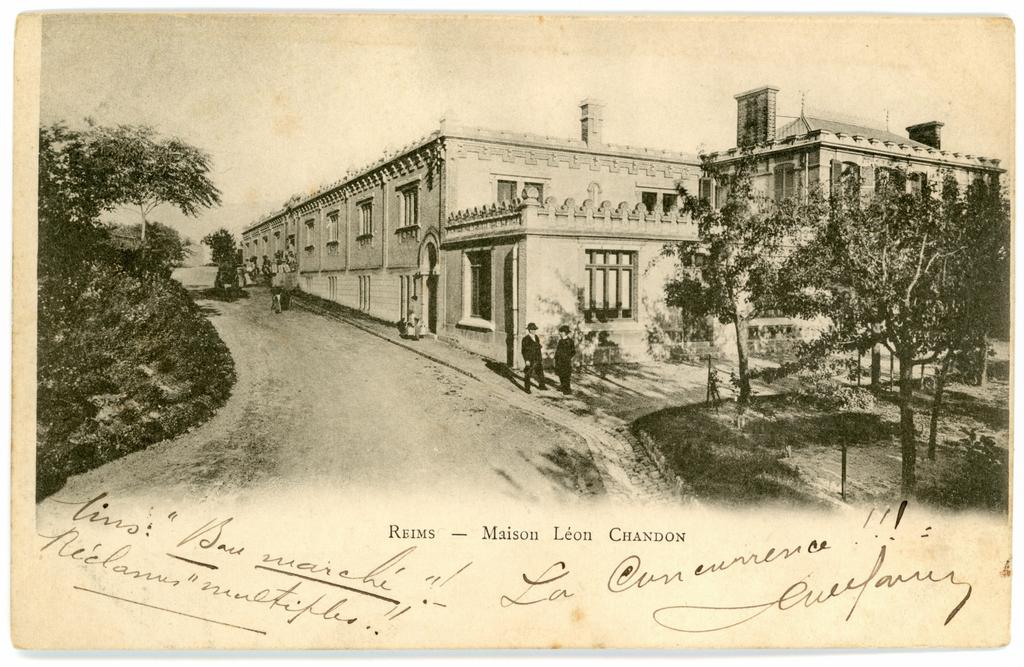 Reims — Maison Léon Chandon
Vins: "Bon marché"!!
Réclames "multiples"!!
La Concurrence!!!